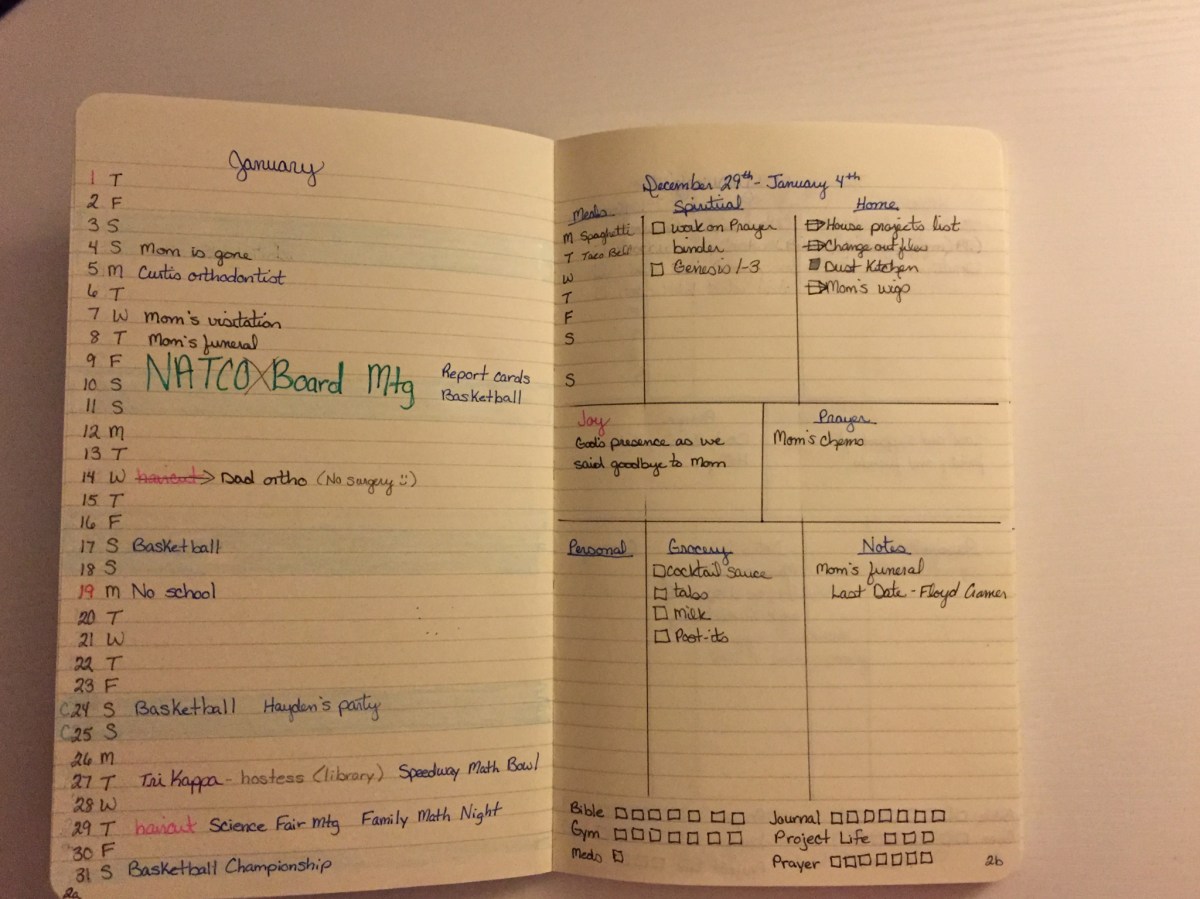 January
1 T
2 F
3 S
4 S Mom is gone
5 M Curtis orthodontist
6 T
7 W Mom's visitation
8 T Mom's funeral
9 F
10 S
NATCO X Board Mtg
Report cards
Basketball
11 S
12 M
13 T
14 W haircut → Dad ortho (No surgery :))
15 T
16 F
17 S Basketball
18 S
19 M No school
20 T
21 W
22 T
23 F
C24 S Basketball Hayden's party
C25 S
26 M
27 T Tri Kappa - hostess (library) Speedway Math Bowl
28 W
29 T haircut Science Fair Mtg Family Math Night
30 F
31 S Basketball Championship
2a
December 29th - January 4th
Meals
M Spaghetti
T Taco Bell
W
T
F
S
S
Spiritual
□ work on Prayer
binder
□ Genesis 1-3
Home
House projects list
Change out
Dust Kitchen
Mom's wigs
Joy
God's presence as we
said goodbye to Mom
Prayer
Mom's chemo
Personal
Grocery
□ cocktail sauce
□ tabs
□ Milk
□ Post-its
Notes
Mom's funeral
Last Date - Floyd
Bible □□□□□□□
Gym □□□□□□□
Meds □
Journal □□□□□□□
Project Life □□□
Prayer □□□□□□□
2b